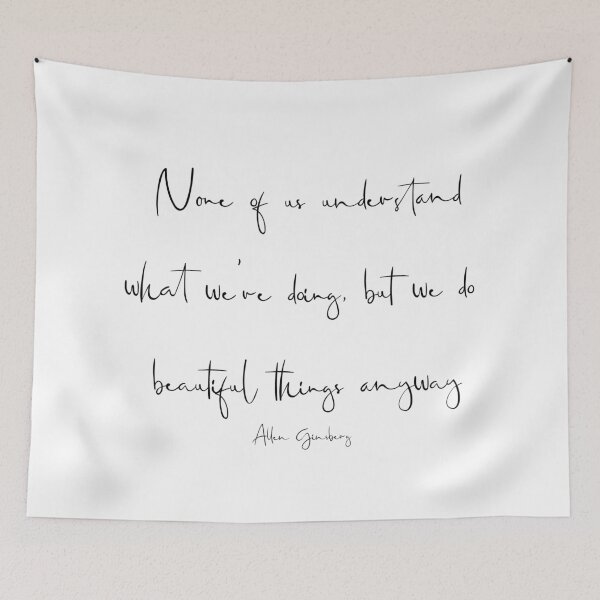 None of us understand
what we're doing, but we do
beautiful things anyway
Allen Ginsberg